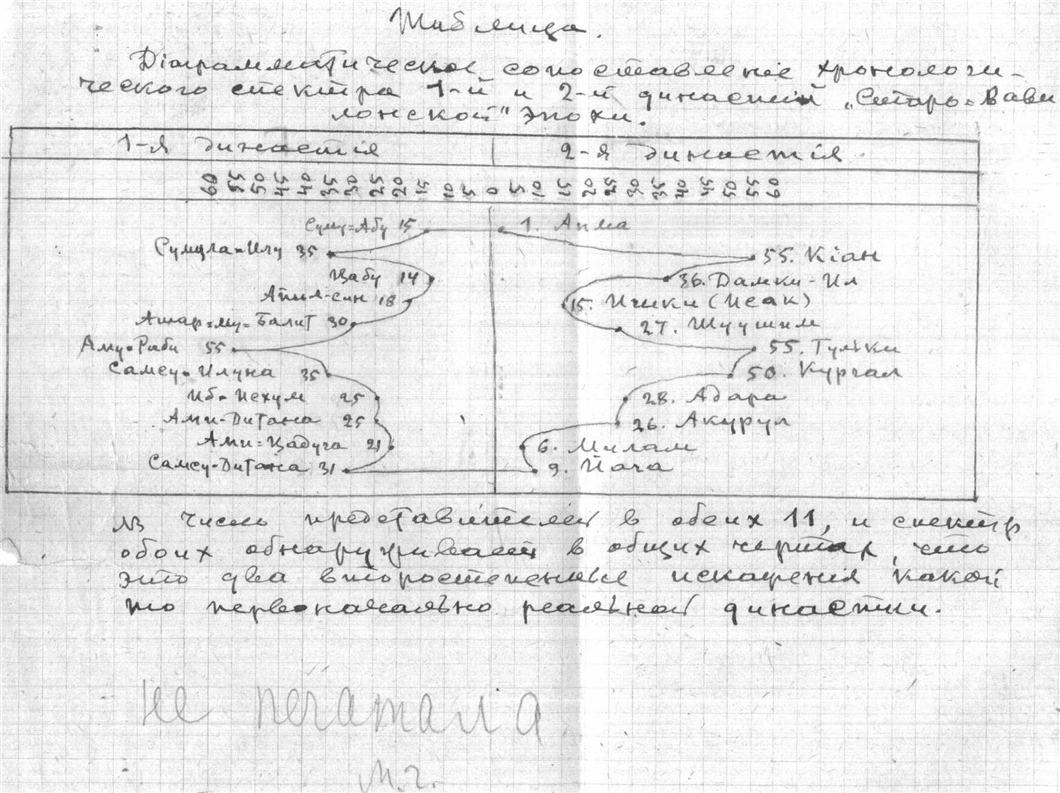 Таблица.
Дiаграмматическое сопоставленiе хронологи-
ческого спектра 1-й и 2-й династий „Старо=Вави
лонской" эпохи.
1-я династiя 2-я династiя.
60 55 50 45 40 35 30 25 20 15 10 5 0 5 10 15 20 25 30 35 40 45 50 55 60
Суму=Абу 15 1. Анма
Сумула=Илу 35 55. Кiан
Цабу 14 36. Дамки-Ил
Апил-син 18 15. Ишки (Исак)
Амар=му=Балит 30 27. Шуушим
Аму=Раби 55 55. Тульки
Самсу=Илуна 35 50. Кургал
Иб=Иехум 25 28. Адара
Ами-Дитана 25 26. Акурул
Ами=Цадуга 21 6. Милам
Самсу-Дитана 31 9. Йача
NB число представителей в обеих 11, и спектр
обоих обнаруживает в общих чертах, что
это два второстепенные искажения какой
то первоначально реальной династии.
не печатала
м.г.